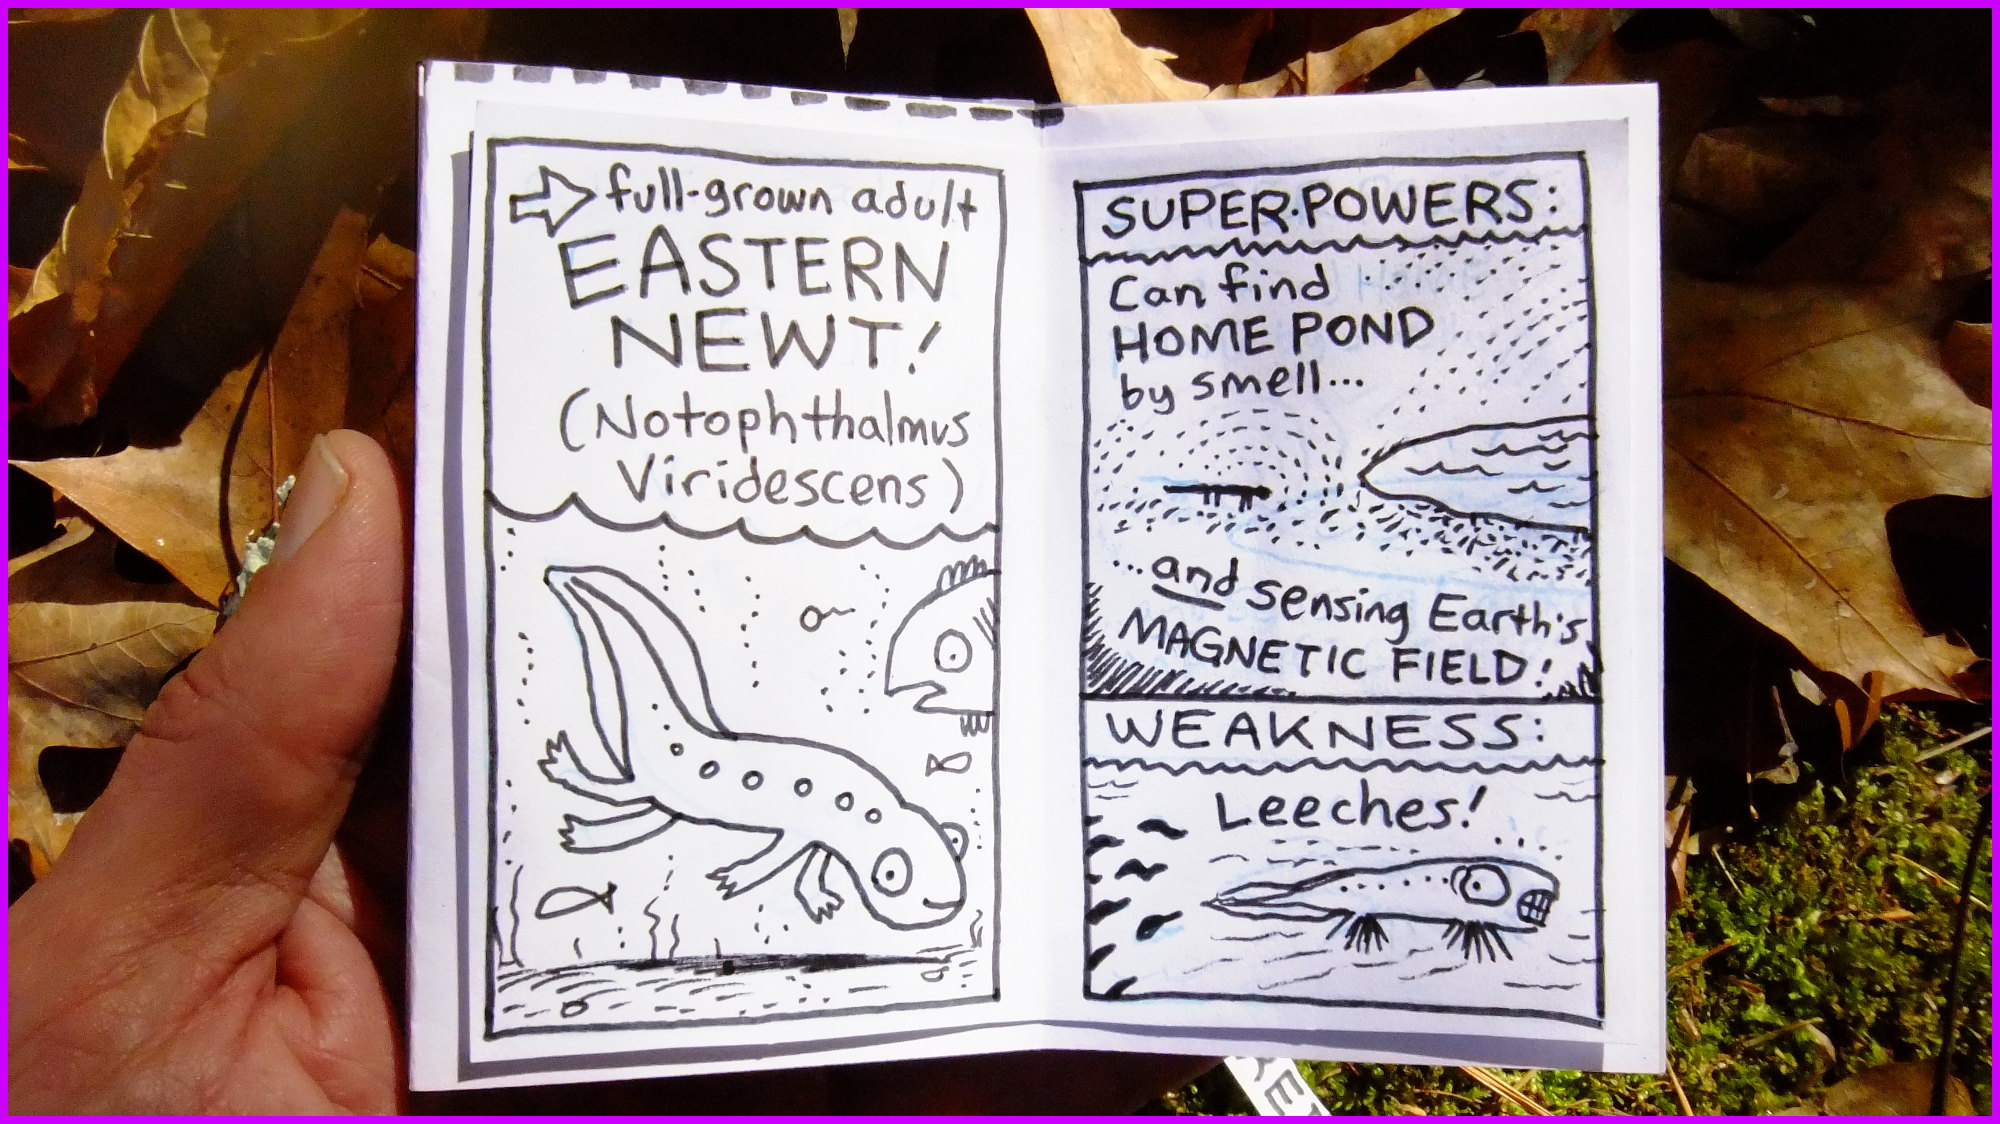 full-grown adult
EASTERN
NEWT!
(Notophthalmus
Viridescens)
SUPER·POWERS:
Can find
HOME POND
by smell...
...and sensing Earth's
MAGNETIC FIELD!
WEAKNESS:
Leeches!